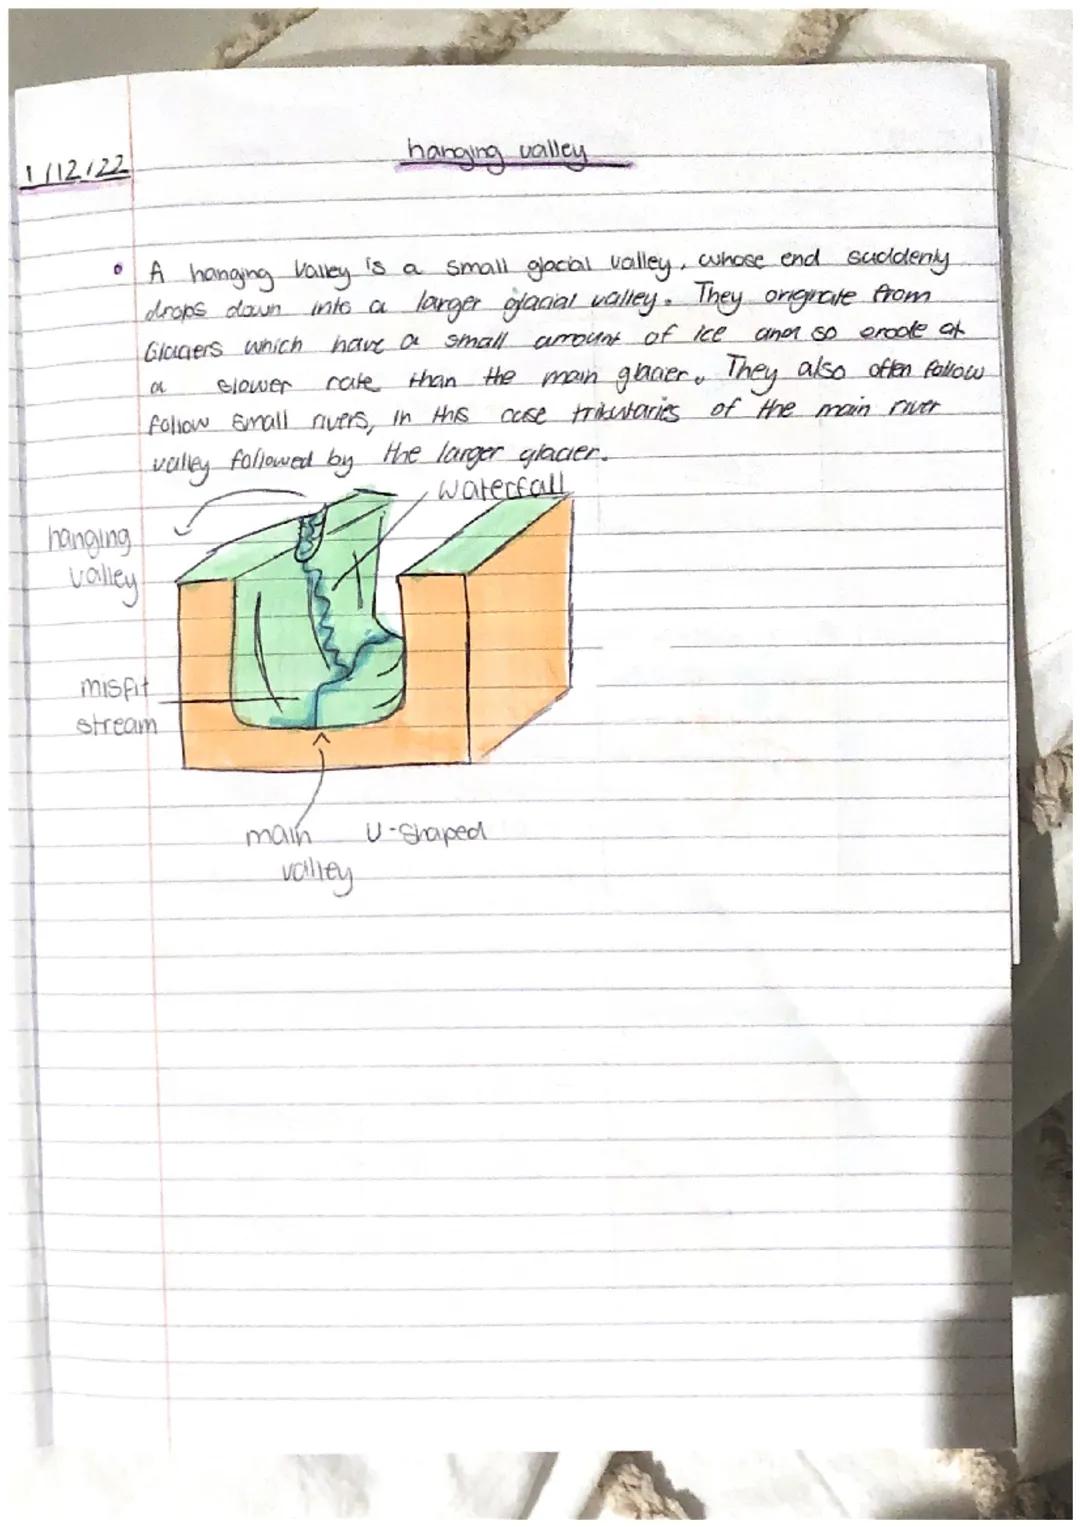 1/12/22
hanging valley
• A hanging valley is a small glacial valley, whose end suddenly
drops down into a larger glacial valley. They originate from
Glaciers which have a small amount of ice and so erode at
a slower rate than the main glacier. They also often follow
follow small rivers, in this case tributaries of the main river
valley followed by the larger glacier.
waterfall
hanging
valley
misfit
stream
main U-shaped
valley